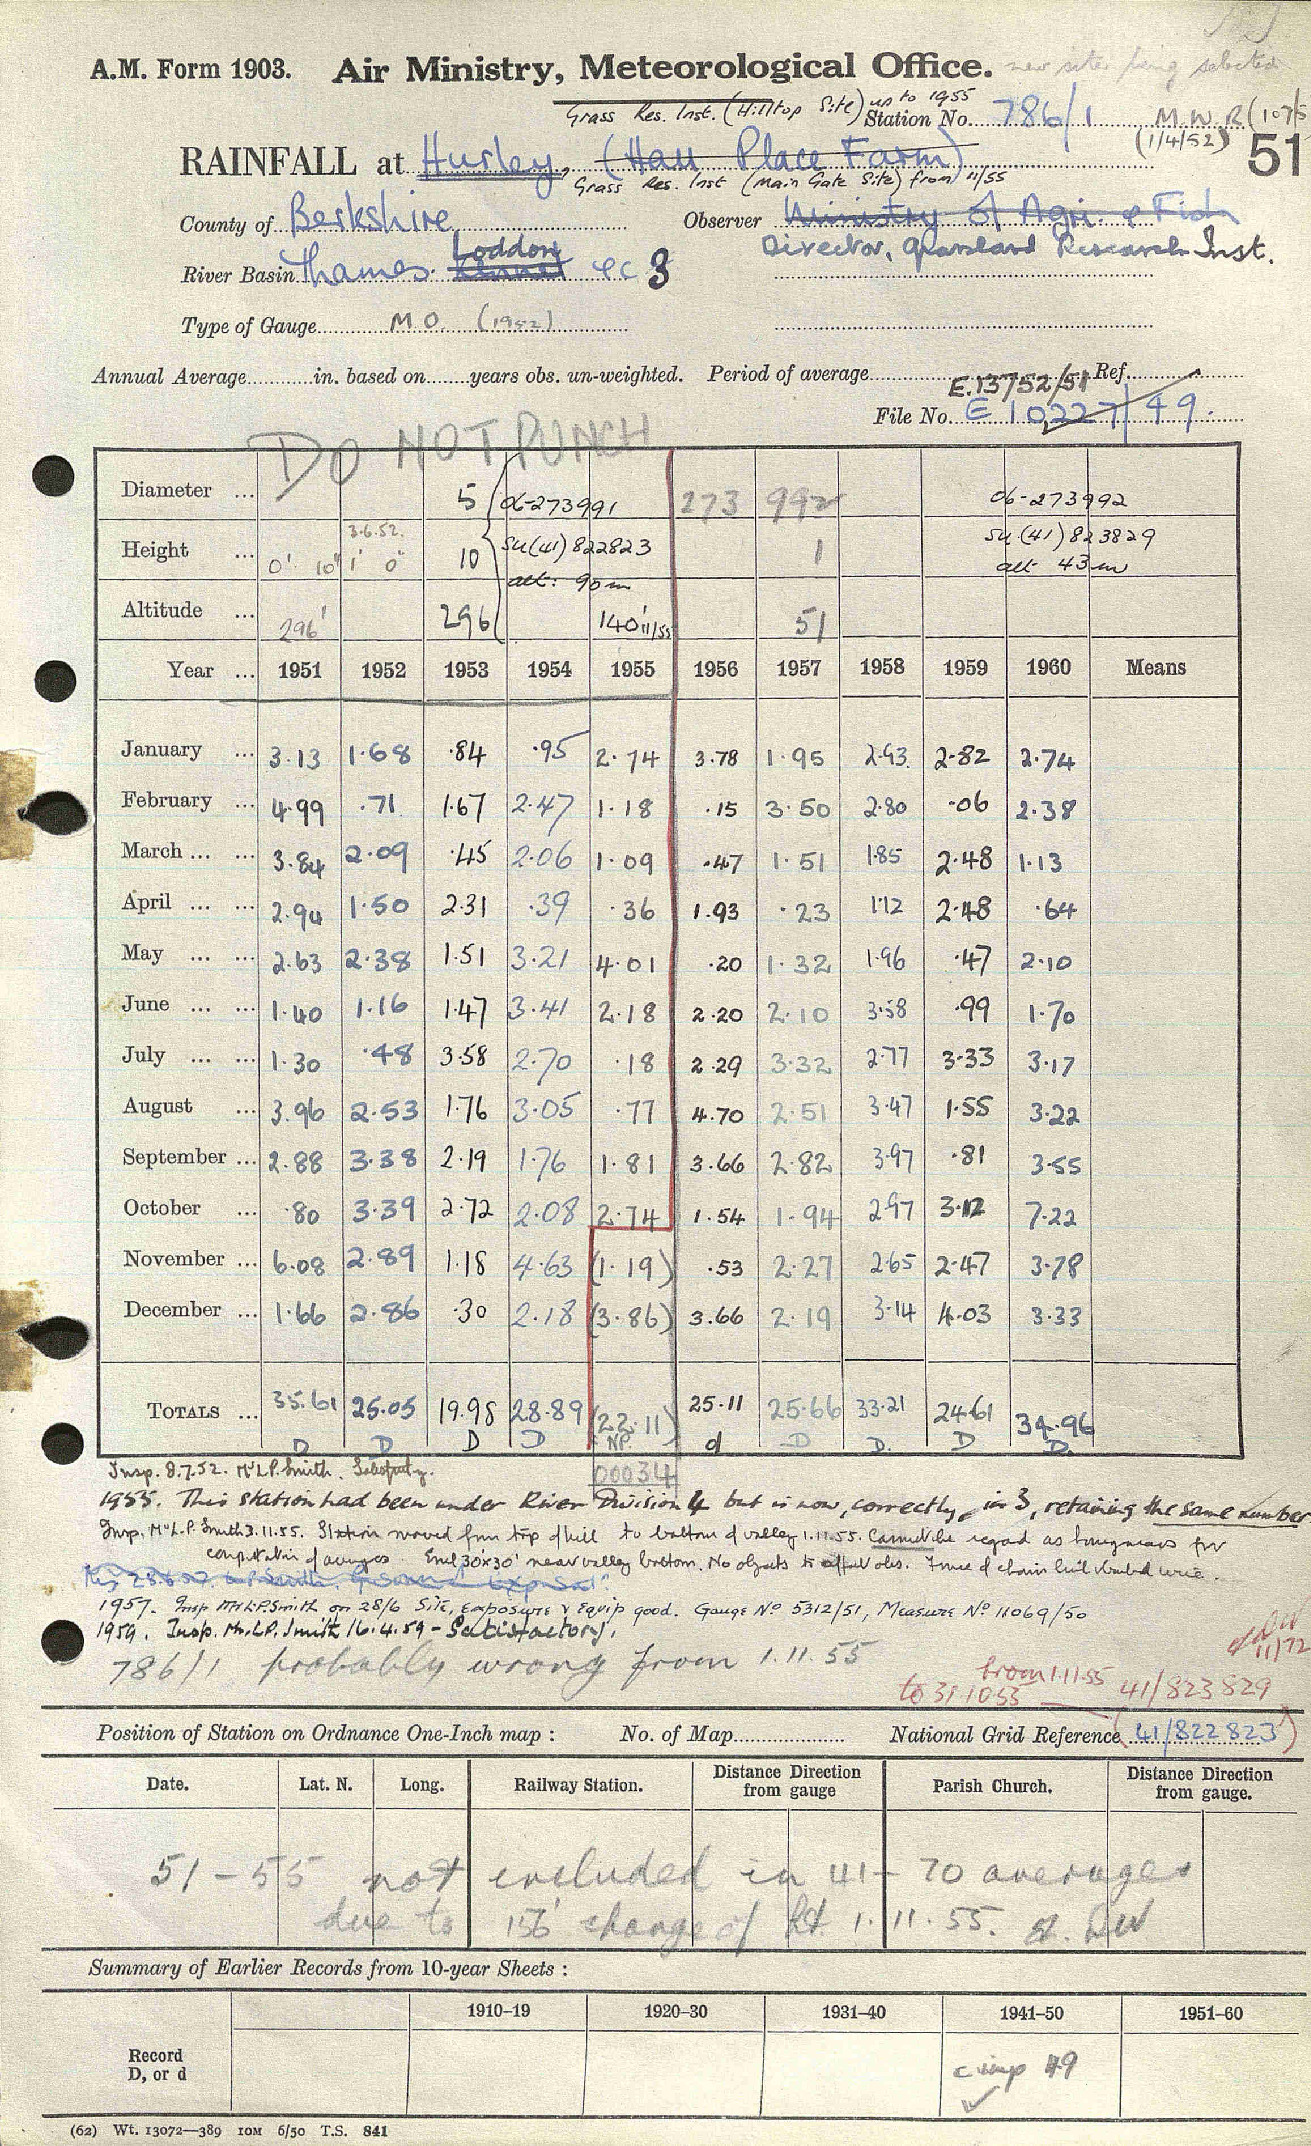 new site being selected
A.M. Form 1903. Air Ministry, Meteorological Office.
Grass Res. Inst. (Hilltop Site) up to 1955
Station No. 786/1 M.W.R (1075
(1/4/52) 51
RAINFALL at Hurley, (Hall Place Farm)
Grass Res. Inst (Main Gate Site) from 11/55
County of Berkshire Observer Ministry of Agri. & Fish
Director, Grassland Research Inst.
River Basin Thames. Loddon Kennet &c 3
Type of Gauge M O. (1952)
Annual Average in. based on years obs. un-weighted. Period of average Ref.
E.13752/51
File No. E 10227/49.
DO NOT PUNCH
Diameter ... 5 06-273991 273 992 06-273992
Height ... 0' 10" 3.6.52. 1' 0" 10 SU(41) 822823 1 SU(41) 823829
alt: 90m alt 43m
Altitude ... 296' 296 140' 11/55 51
Year ... 1951 1952 1953 1954 1955 1956 1957 1958 1959 1960 Means
January ... 3.13 1.68 .84 .95 2.74 3.78 1.95 2.93 2.82 2.74
February ... 4.99 .71 1.67 2.47 1.18 .15 3.50 2.80 .06 2.38
March ... ... 3.84 2.09 .45 2.06 1.09 .47 1.51 1.85 2.48 1.13
April ... ... 2.94 1.50 2.31 .39 .36 1.93 .23 1.12 2.48 .64
May ... ... 2.63 2.38 1.51 3.21 4.01 .20 1.32 1.96 .47 2.10
June ... ... 1.40 1.16 1.47 3.41 2.18 2.20 2.10 3.58 .99 1.70
July ... ... 1.30 .48 3.58 2.70 .18 2.29 3.32 2.77 3.33 3.17
August ... 3.96 2.53 1.76 3.05 .77 4.70 2.51 3.47 1.55 3.22
September ... 2.88 3.38 2.19 1.76 1.81 3.66 2.82 3.97 .81 3.55
October ... .80 3.39 2.72 2.08 2.74 1.54 1.94 2.97 3.12 7.22
November ... 6.08 2.89 1.18 4.63 (1.19) .53 2.27 2.65 2.47 3.78
December ... 1.66 2.86 .30 2.18 (3.86) 3.66 2.19 3.14 4.03 3.33
TOTALS ... 35.61 25.05 19.98 28.89 (22.11) 25.11 25.66 33.21 24.61 34.96
D D D D NP. d D D. D D.
Insp. 8.7.52. Mr L.P. Smith. Satisfactory. 00034
1955. This station had been under River Division 4 but is now, correctly, in 3, retaining the same number
Insp. Mr L.P. Smith 3.11.55. Station moved from top of hill to bottom of valley 1.11.55. Cannot be regard as homogeneous for
computation of averages. Encl 30'x30' near valley bottom. No objects to affect obs. Fence of chain link
1957. Insp Mr L.P. Smith on 28/6 Site, exposure & Equip good. Gauge No 5312/51, Measure No 11069/50
1959. Insp. Mr. L.P. Smith 16.4.59 - Satisfactory.
786/1 probably wrong from 1.11.55
11/72
from 1.11.55 41/823829
to 31.10.55
Position of Station on Ordnance One-Inch map : No. of Map National Grid Reference (41/822823)
Date. Lat. N. Long. Railway Station. Distance Direction from gauge Parish Church. Distance Direction from gauge.
51-55 not included in 41-70 averages
due to 156' change of ht. 1.11.55. DW
Summary of Earlier Records from 10-year Sheets :
1910–19 1920–30 1931–40 1941–50 1951–60
Record
D, or d
49
(62) Wt. 13072—389 10M 6/50 T.S. 841